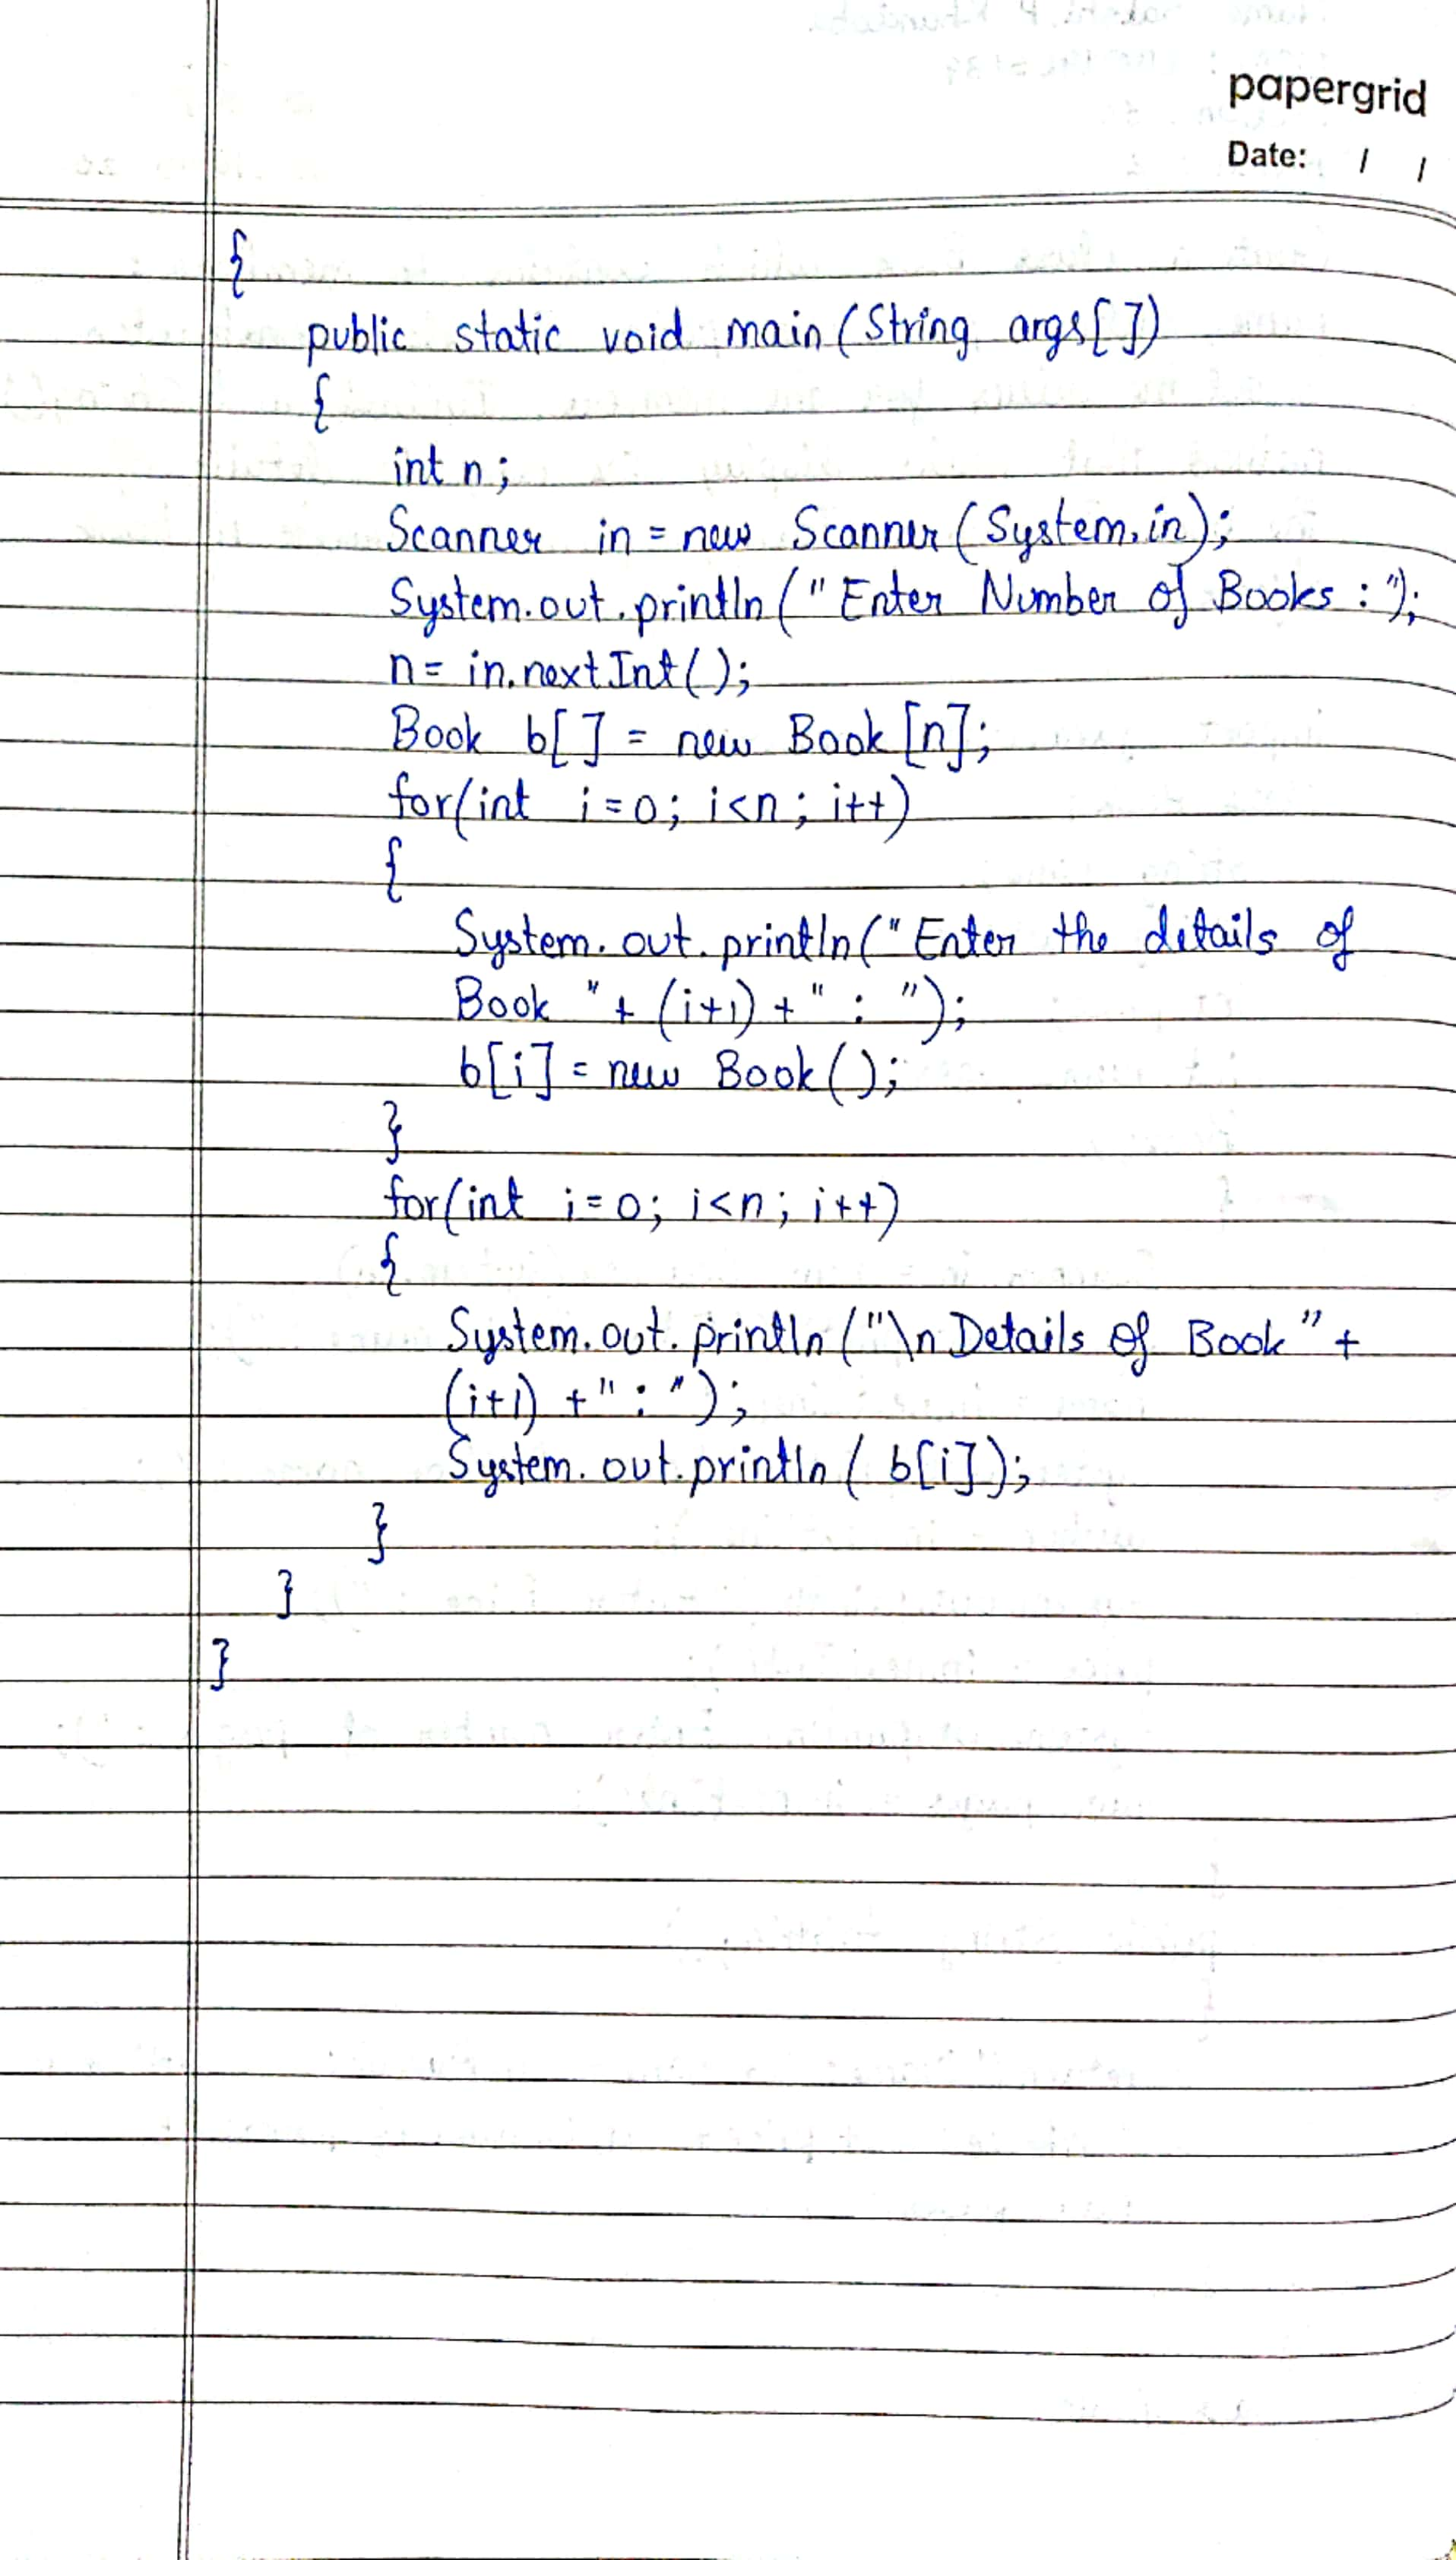 papergrid
Date: / /
{
public static void main(String args[])
{
int n;
Scanner in = new Scanner(System.in);
System.out.println("Enter Number of Books :");
n= in.nextInt();
Book b[] = new Book[n];
for(int i=0; i<n; i++)
{
System.out.println("Enter the details of
Book "+ (i+1) +" : ");
b[i] = new Book();
}
for(int i=0; i<n; i++)
{
System.out.println("\n Details of Book" +
(i+1) +" : ");
System.out.println( b[i]);
}
}
}